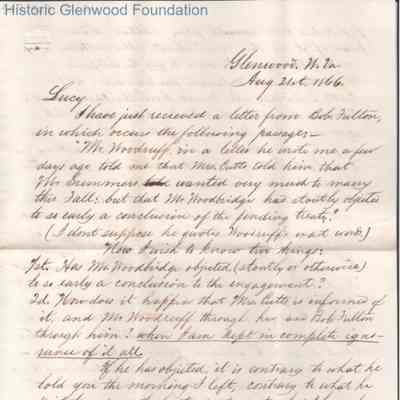 Historic Glenwood Foundation
Glenwood, W. Va
Aug 21st, 1866.
Lucy
I have just recieved a letter from Bob Fulton,
in which occurs the following passage:—
"Mr Woodruff, in a letter he wrote me a few
days ago told me that Mrs. Cutts told him that
Mr Summers told wanted very much to marry
this Fall; but that Mr Woodbridge has stoutly objected
to so early a conclusion of the pending treaty."
(I dont suppose he quotes Woodruff's exact words.)
Now I wish to know two things:
1st. Has Mr Woodbridge objected (stoutly or otherwise)
to so early a conclusion to the engagement?
2d. How does it happen that Mrs Cutts is informed of
it, and Mr Woodruff through her, and Bob Fulton
through him? when I am kept in complete igno-
rance of it all.
If he has objected, it is contrary to what he
told you the morning I left, contrary to what he